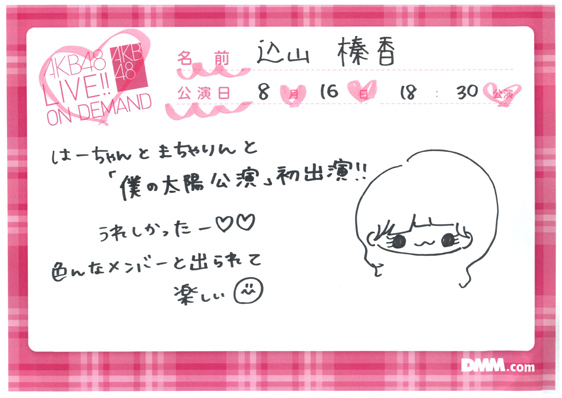 AKB48
LIVE!!
ON DEMAND
AKB
48
名前 込山 榛香
公演日 8月 16日 18:30公演
はーちゃんとまちゃりんと
「僕の太陽公演」初出演!!
うれしかったー♡♡
色んなメンバーと出られて
楽しい
DMM.com